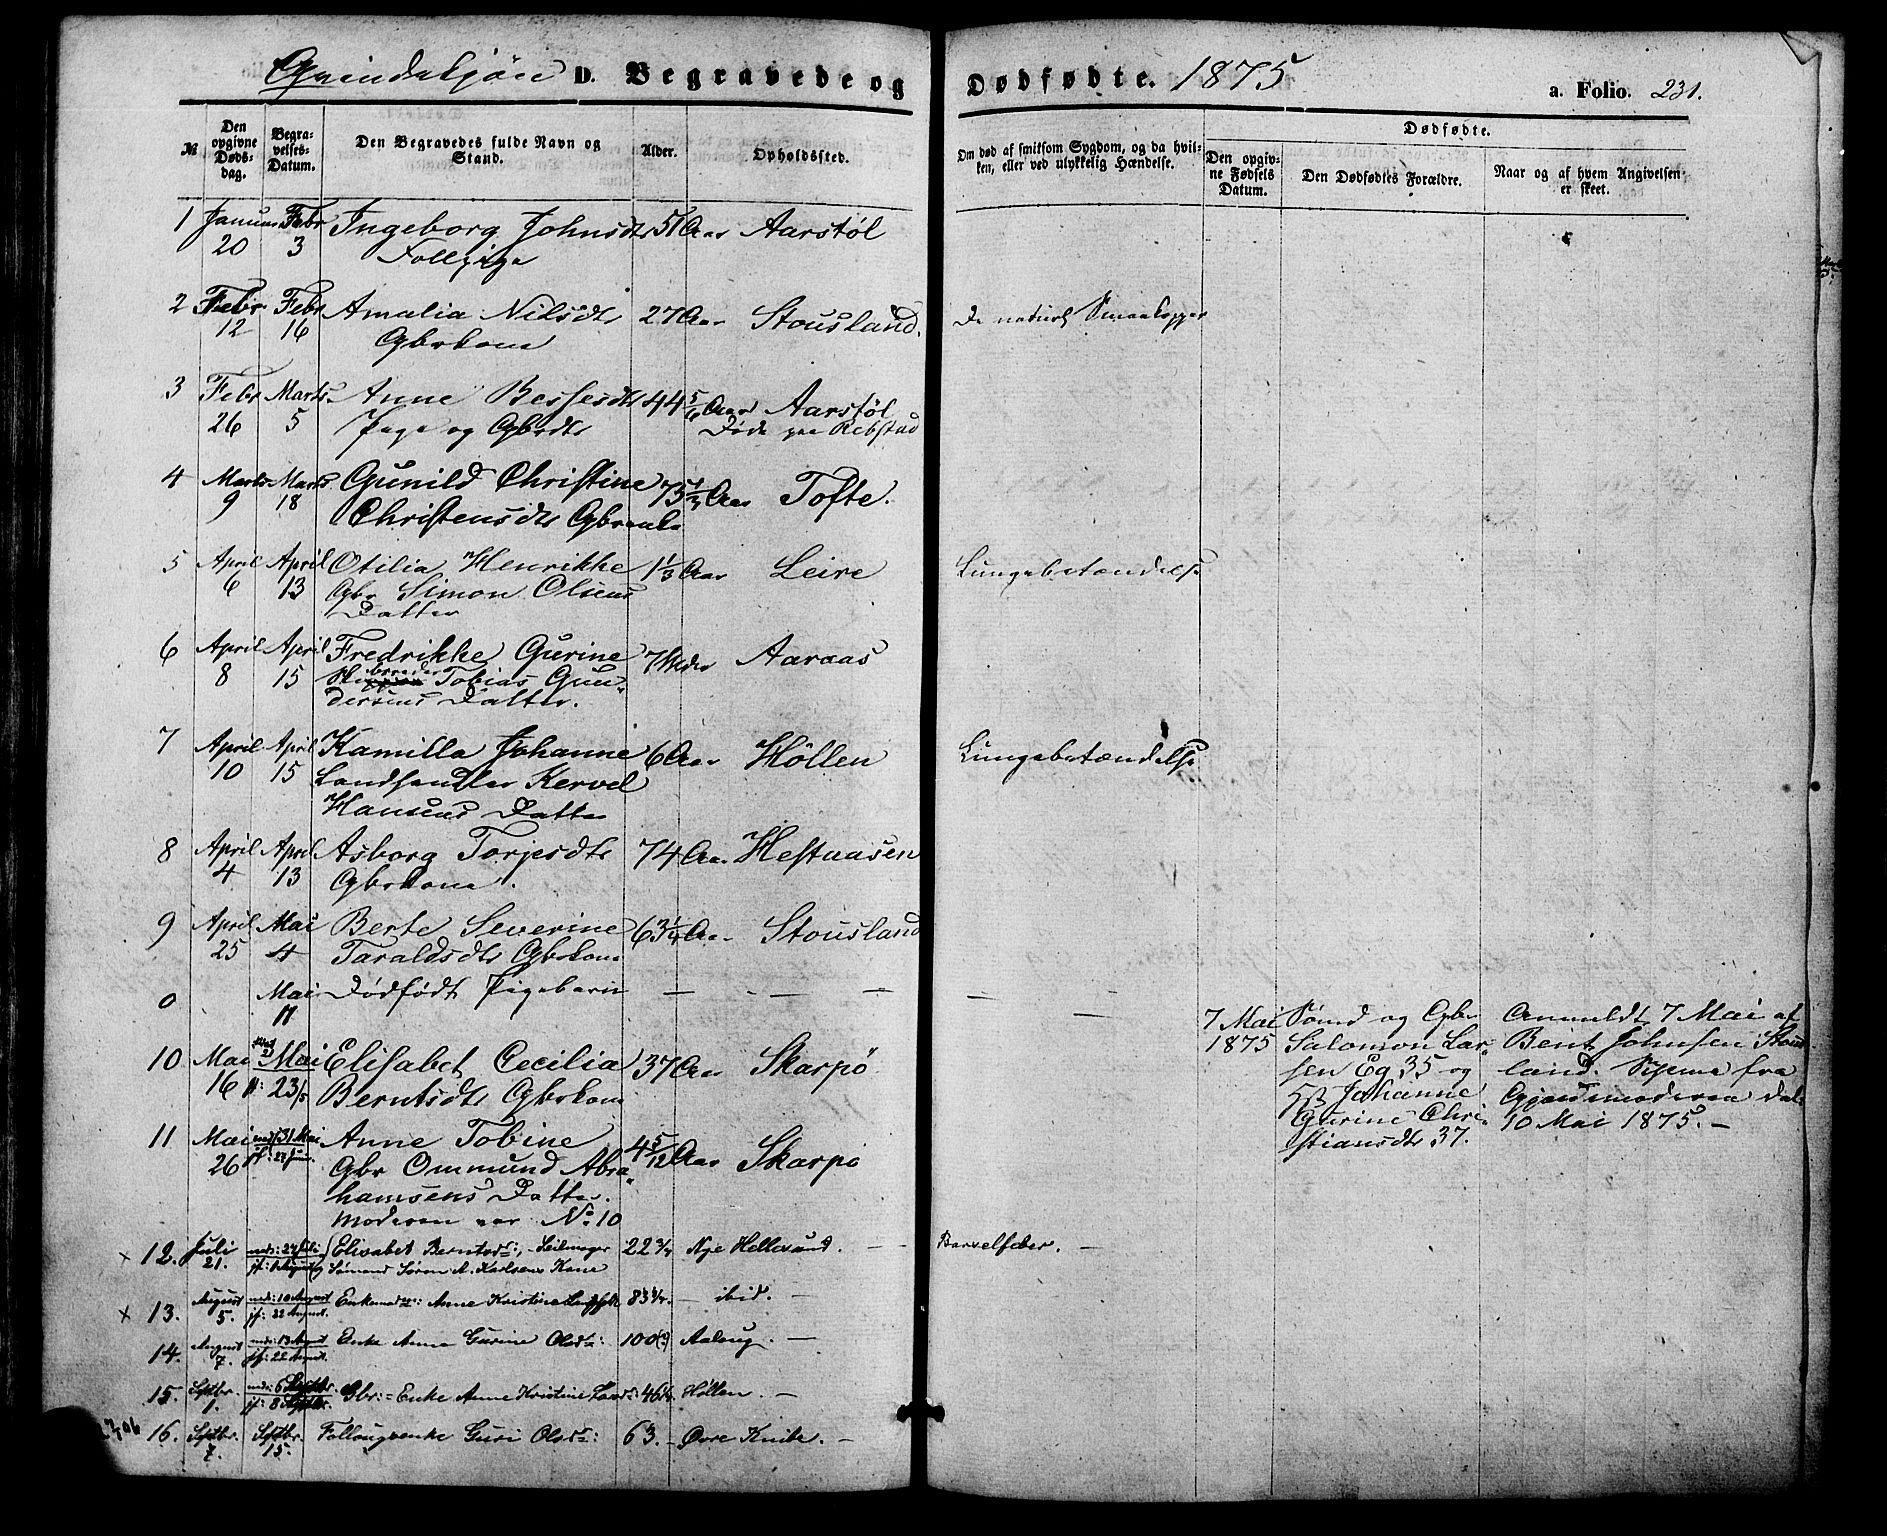 Qvindekjön D. Begravede og Dødfødte. 1875 a. Folio. 231.
№ Den opgivne Dødsdag. Begravelses-Datum. Den Begravedes fulde Navn og Stand. Alder. Opholdssted. Om død af smitsom Sygdom, og da hvilken, eller ved ulykkelig Hændelse. Dødfødte.
Den opgivne Fødsels Datum. Den Dødfødtes Forældre. Naar og af hvem Angivelsen er skeet.
1 Januar Febr Ingeborg Johnsdtr 51 Aar Aarstøl
20 3
2 Febr Febr Amalia Nilsdtr 27 Aar Stousland. De naturl Smaakopper
12 16 Gbrkone
3 Febr Marts Anne 44 5/6 Aar Aarstøl
26 5 Pige og Gbrdtr Døde paa Rebstad
4 Marts Marts Gunild Christine 75 Aar Tofte.
9 18 Christensdtr
5 April April Otilia Henrikke 1 1/3 Aar Leire Lungebetændelse
6 13 Gbr Simon Olsens
Datter
6 April April Fredrikke Gurine 7 Aaraas
8 15 Tobias Gun
dersens Datter.
7 April April Kamilla Johanne 6 Aar Höllen Lungebetændelse
10 15 Landhandler
Hansens Datter
8 April April Asborg Torjesdtr 74 Aar Hestaasen
4 13 Gbrkone.
9 April Mai Berte Severine 63 1/4 Aar Stousland
25 4 Taraldsdtr Gbrkone
0 Mai Dödfödt Pigebarn — — — — — —
11
7 Mai Sömd og Gbr Anmeldt 7 Mai af
1875 Salomon Lar Bent Johnsen Stous
sen Eg 35 og land.
H Johanne
Gurine Chri 10 Mai 1875. —
stiansdtr 37.
10 Mai Mai Elisabet Cecilia 37 Aar Skarpö
16 23/5 Berntsdtr Gbrkone
11 Mai 31 Mai Anne Tobine 4 5/12 Aar Skarpö
26 Gbr Ommund Abra
hamsens Datter.
Moderen var No 10
12. Juli ned: 27 Juli Elisabet Berntsd: 22 3/4 Nye Hellesund. — Barselfeber. —
21. jf: 1 August Sömand Sören A. Karlsens Kone
13. August ned: 10 August Anne Kristine 83 3/4 — ibid. —
5. jf: 22 August.
14. August ned: 13 August Enke Anne Gurine Olsd: 100(?) —
7. jf: 22 August.
15. Septbr. ned: 6 Septbr. Gbr: Enke Anne Kristine Höllen. —
1. jf: 8 Septbr.
16. Septbr. Septbr. Guri Olsd: 63. — Øvre Knibe. —
7. 15.